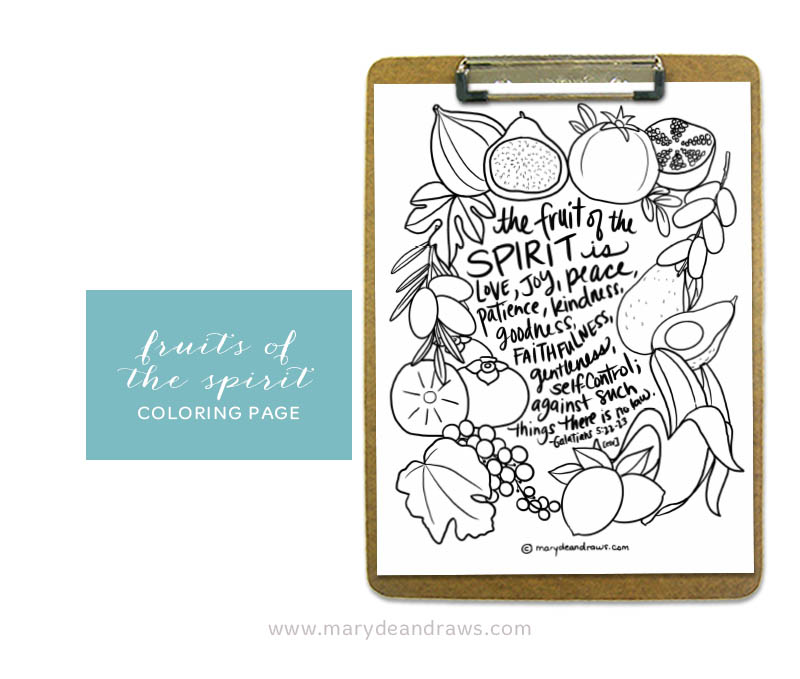 fruits of
the spirit
COLORING PAGE
the fruit of the
SPIRIT is
LOVE, JOY, peace,
patience, kindness,
goodness,
FAITHFULNESS,
gentleness,
self-Control;
against such
things there is no law.
-Galatians 5:22-23
[ESV]
© marydeandraws.com
www.marydeandraws.com